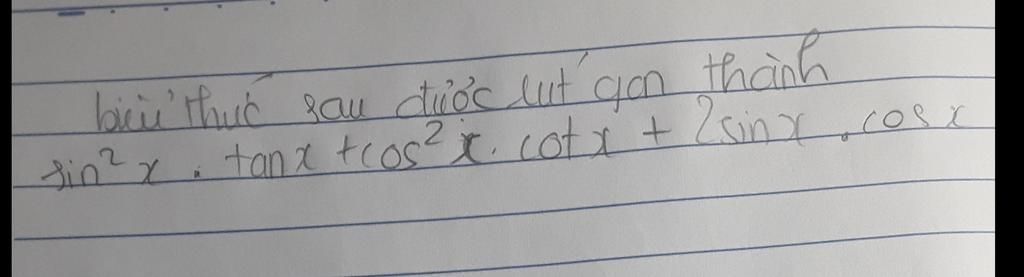 biểu thức sau được rút gọn thành
sin²x . tanx + cos²x . cotx + 2sinx . cosx